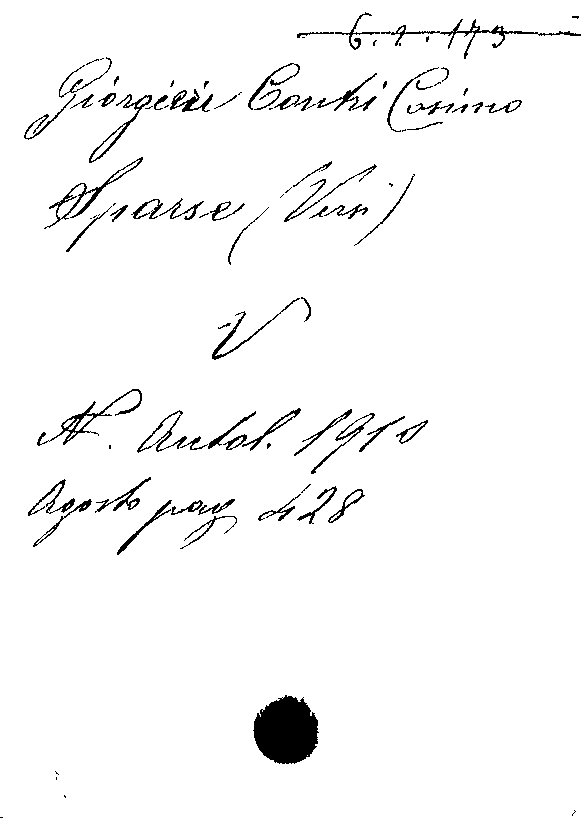 6. 2. 173
Giorgieri Contri Cosimo
Sparse (Versi)
V
N. Antol. 1910
Agosto pag 428